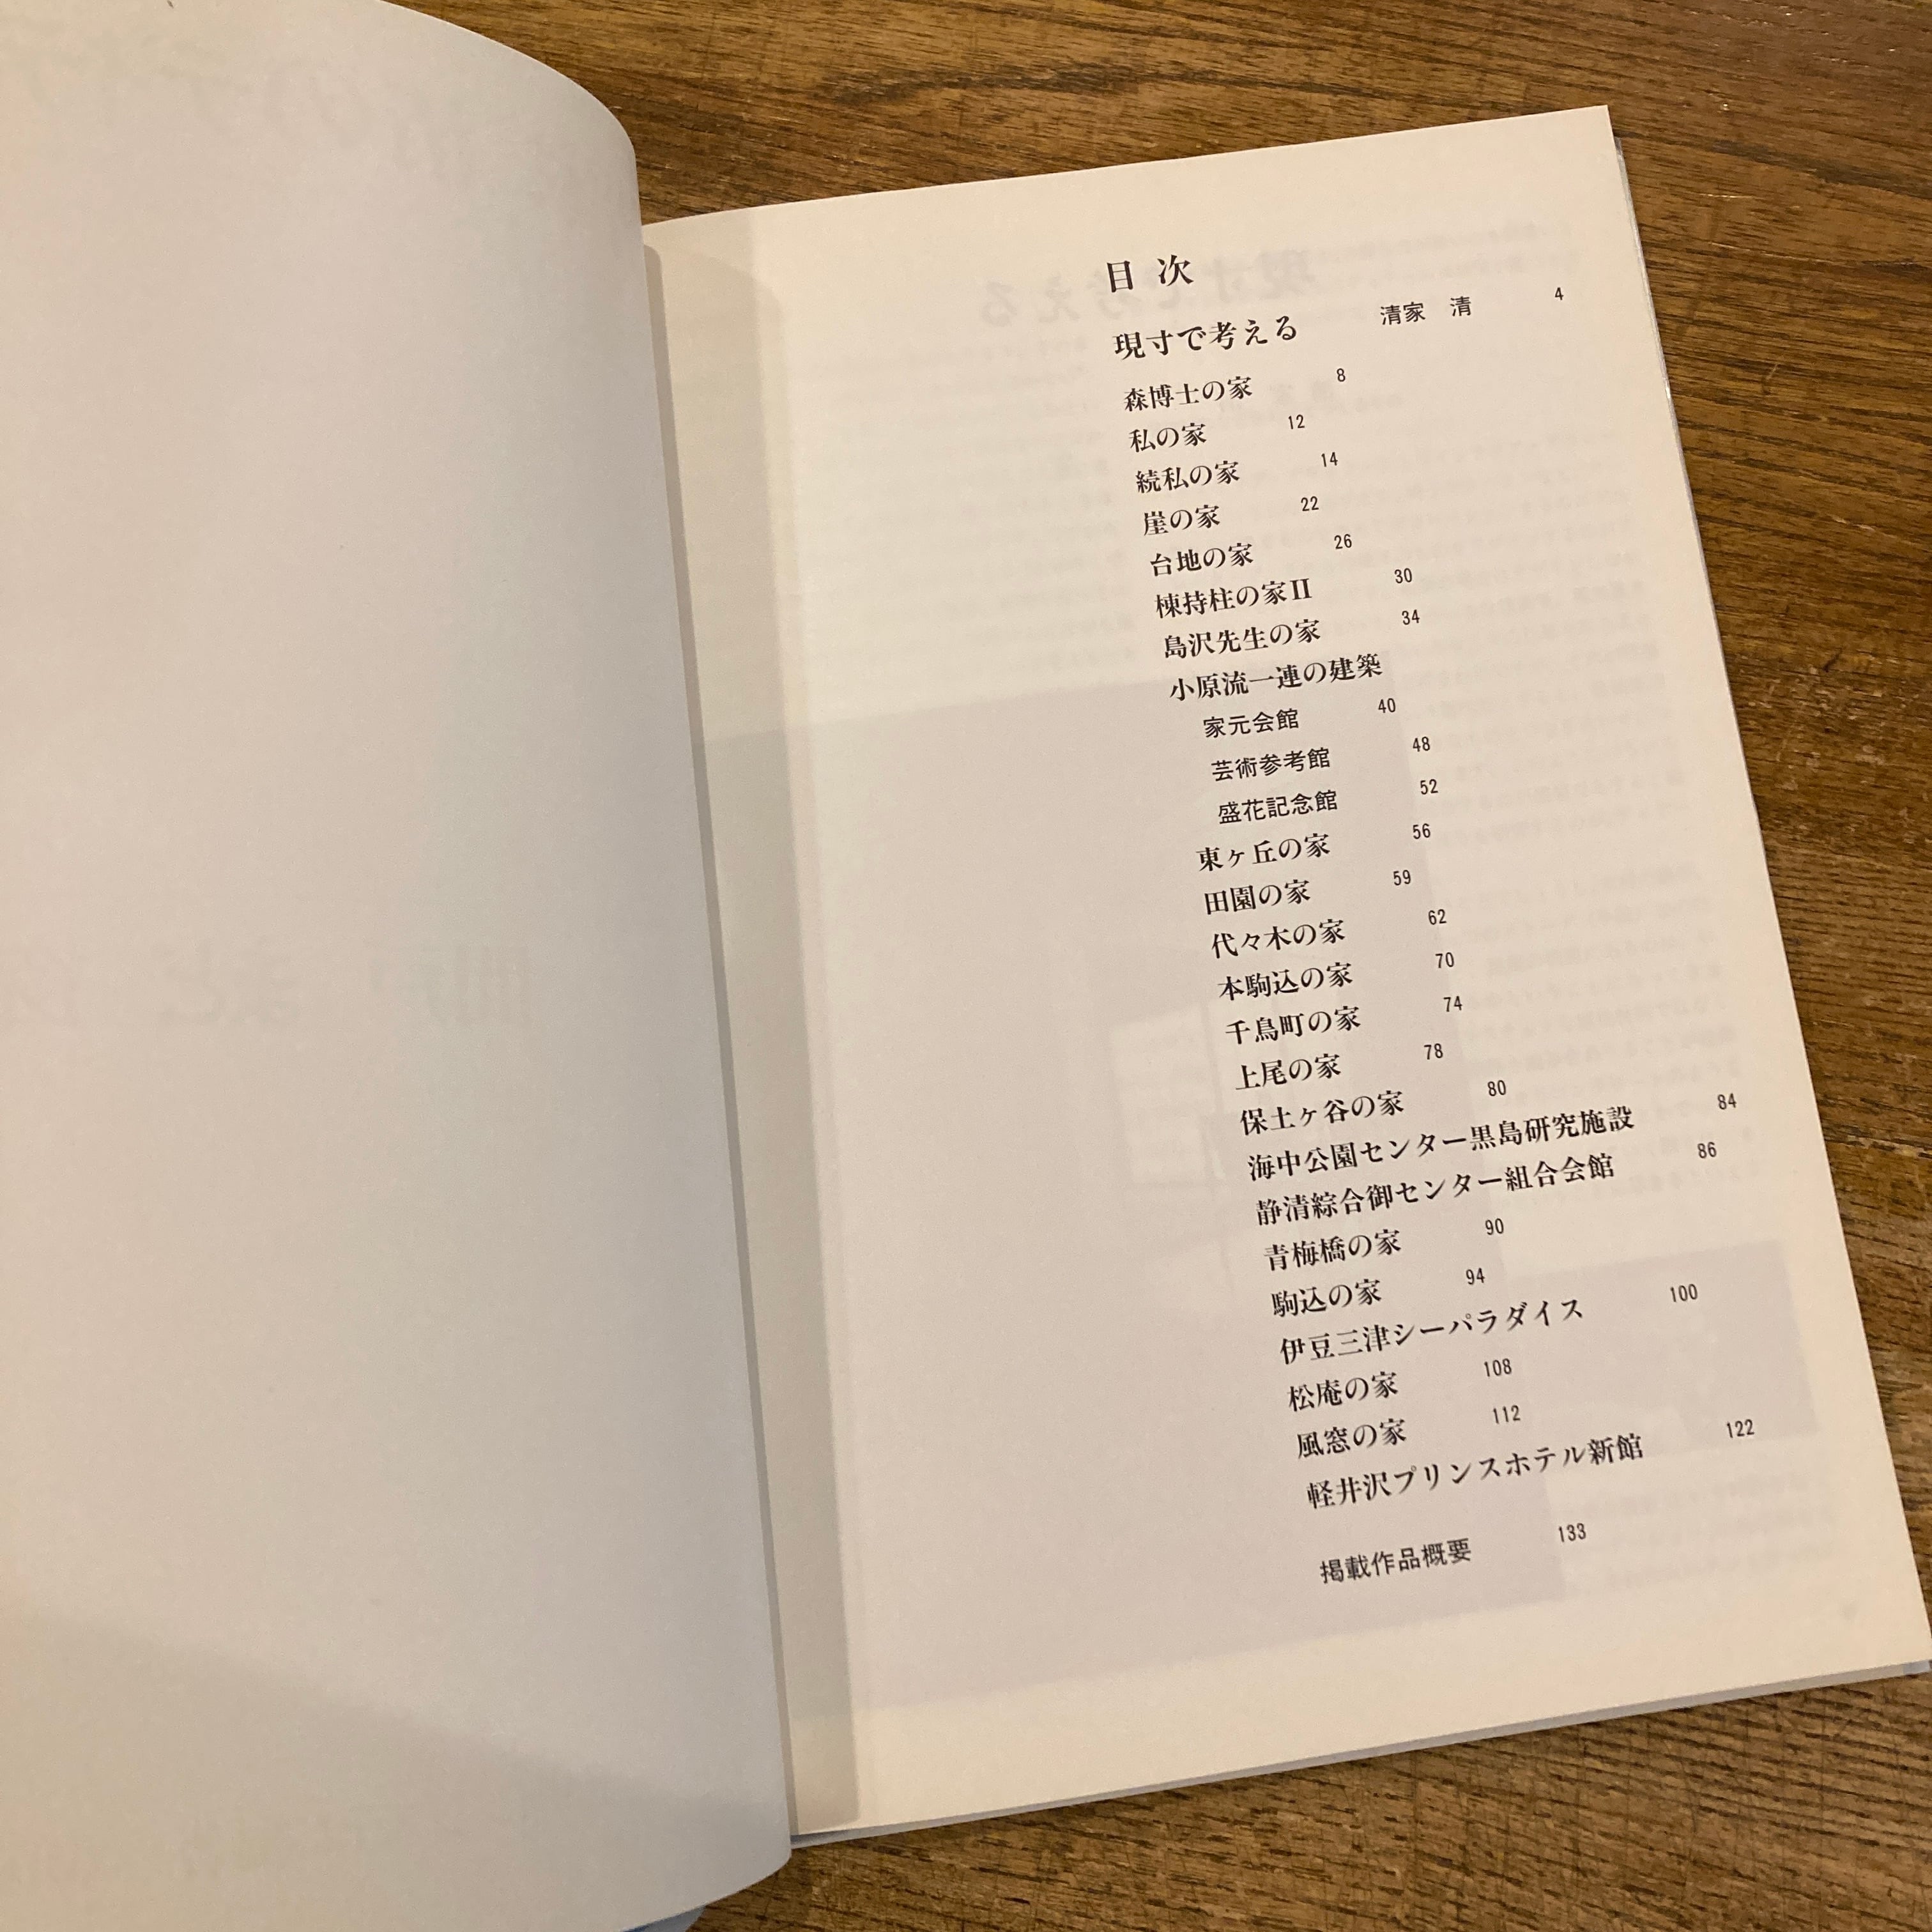 目次
現寸で考える 清家 清 4
森博士の家 8
私の家 12
続私の家 14
崖の家 22
台地の家 26
棟持柱の家II 30
島沢先生の家 34
小原流一連の建築
家元会館 40
芸術参考館 48
盛花記念館 52
東ヶ丘の家 56
田園の家 59
代々木の家 62
本駒込の家 70
千鳥町の家 74
上尾の家 78
保土ヶ谷の家 80
海中公園センター黒島研究施設 84
静清綜合御センター組合会館 86
青梅橋の家 90
駒込の家 94
伊豆三津シーパラダイス 100
松庵の家 108
風窓の家 112
軽井沢プリンスホテル新館 122
掲載作品概要 133